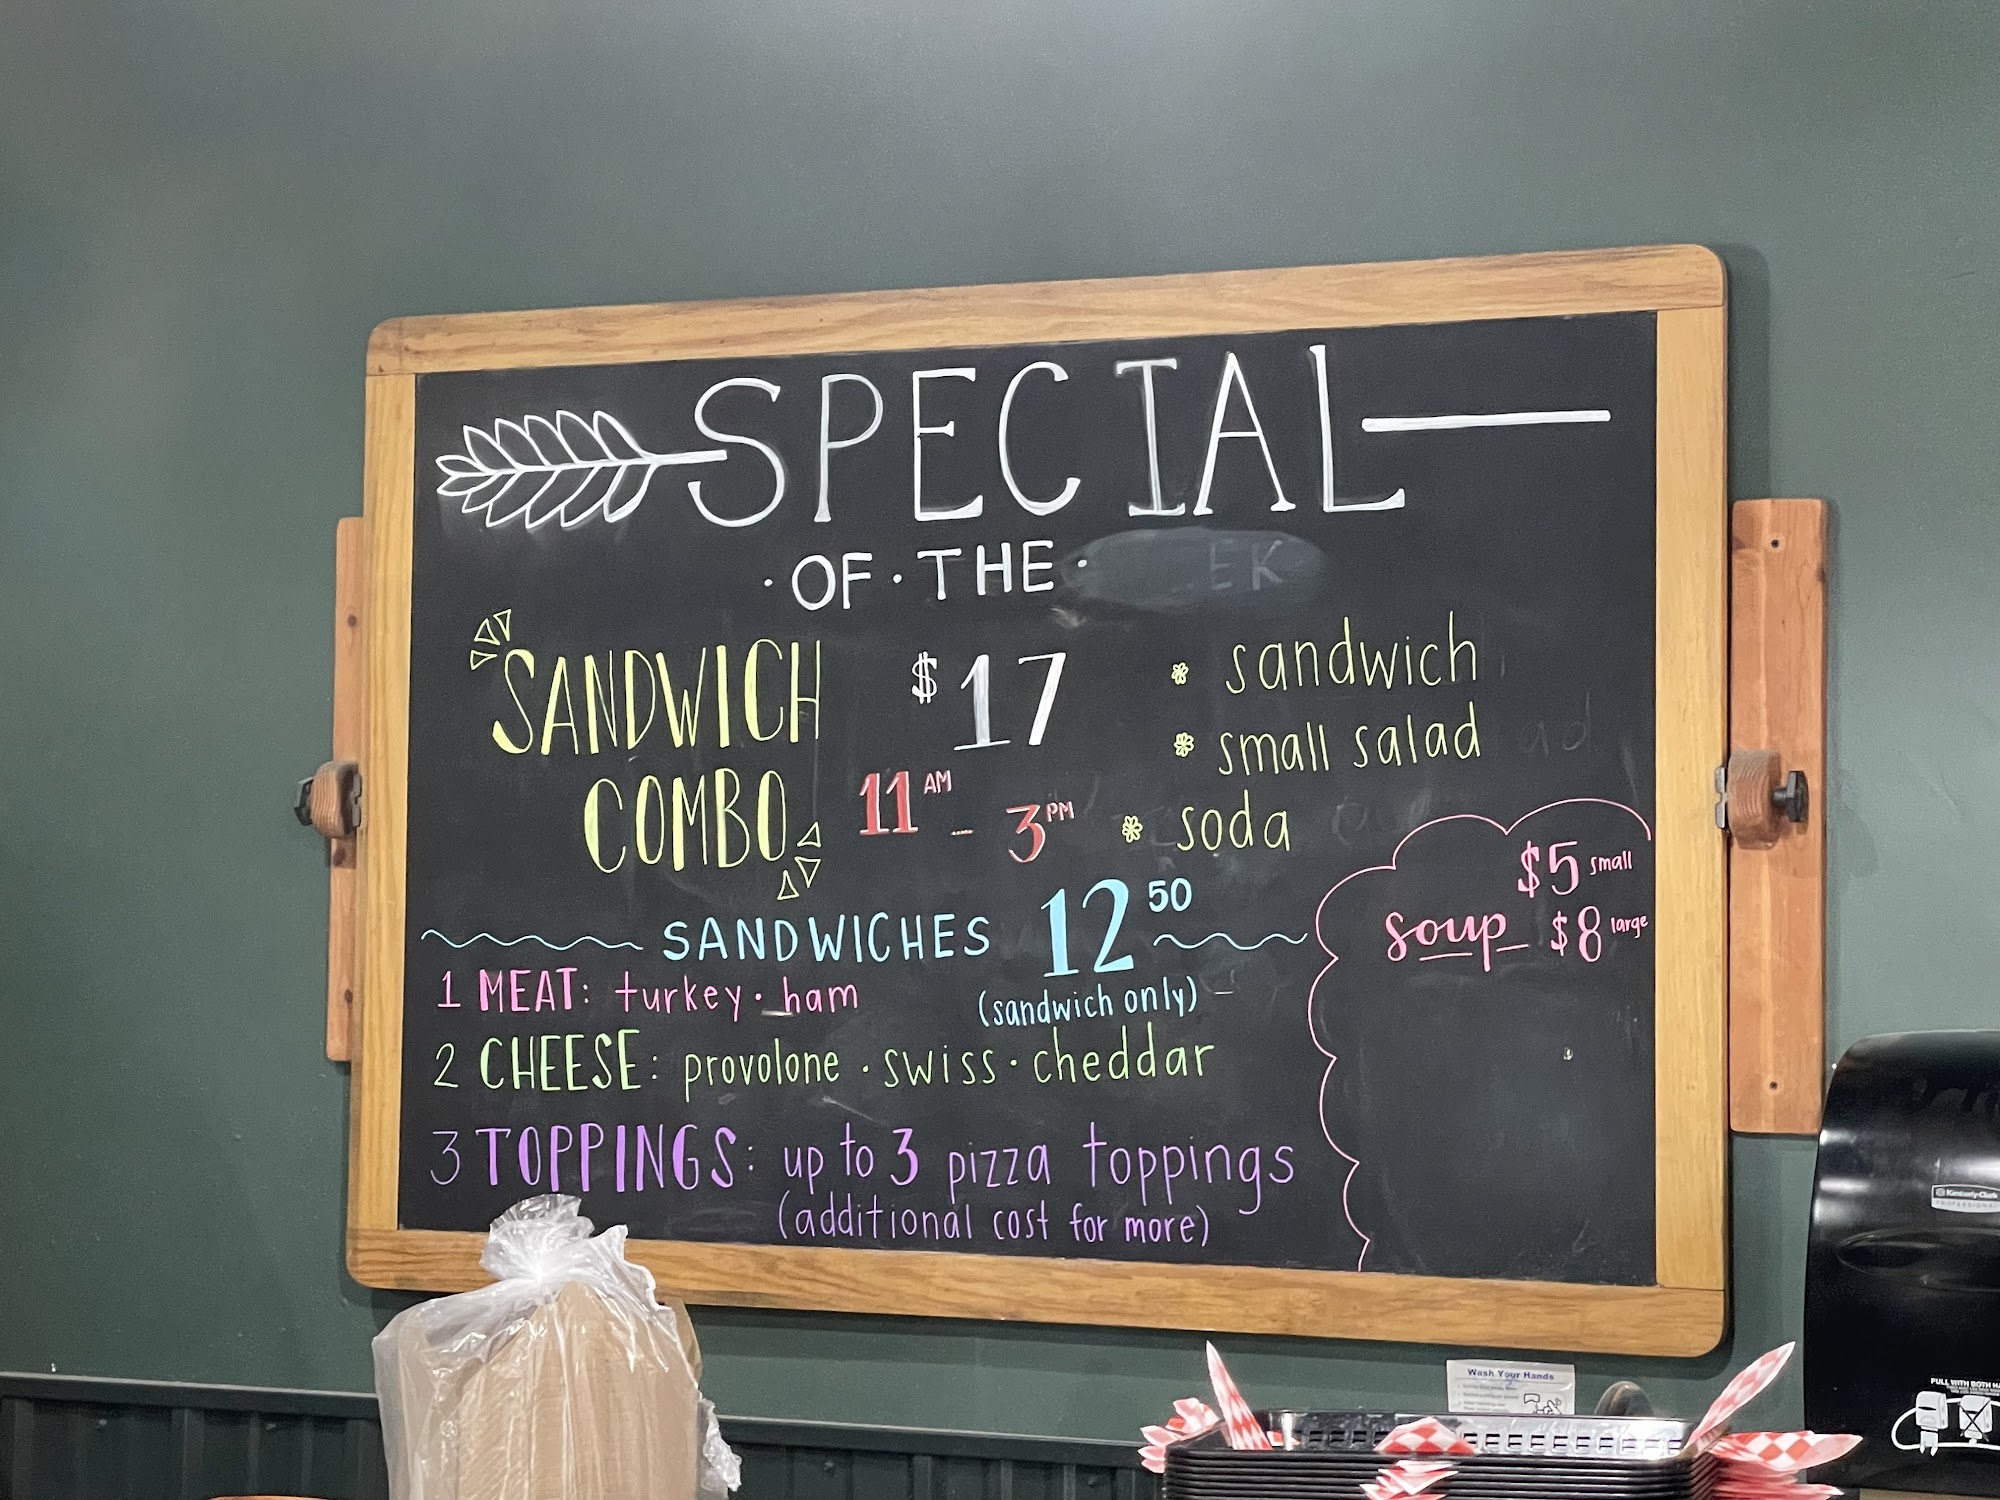 SPECIAL
· OF · THE ·
SANDWICH
COMBO
$17
11 AM - 3 PM
sandwich
small salad
soda
SANDWICHES 12 50
(sandwich only)
1 MEAT: turkey · ham
2 CHEESE: provolone · swiss · cheddar
3 TOPPINGS: up to 3 pizza toppings
(additional cost for more)
soup
$5 small
$8 large
Wash Your Hands
Kimberly-Clark
PROFESSIONAL
PULL WITH BOTH